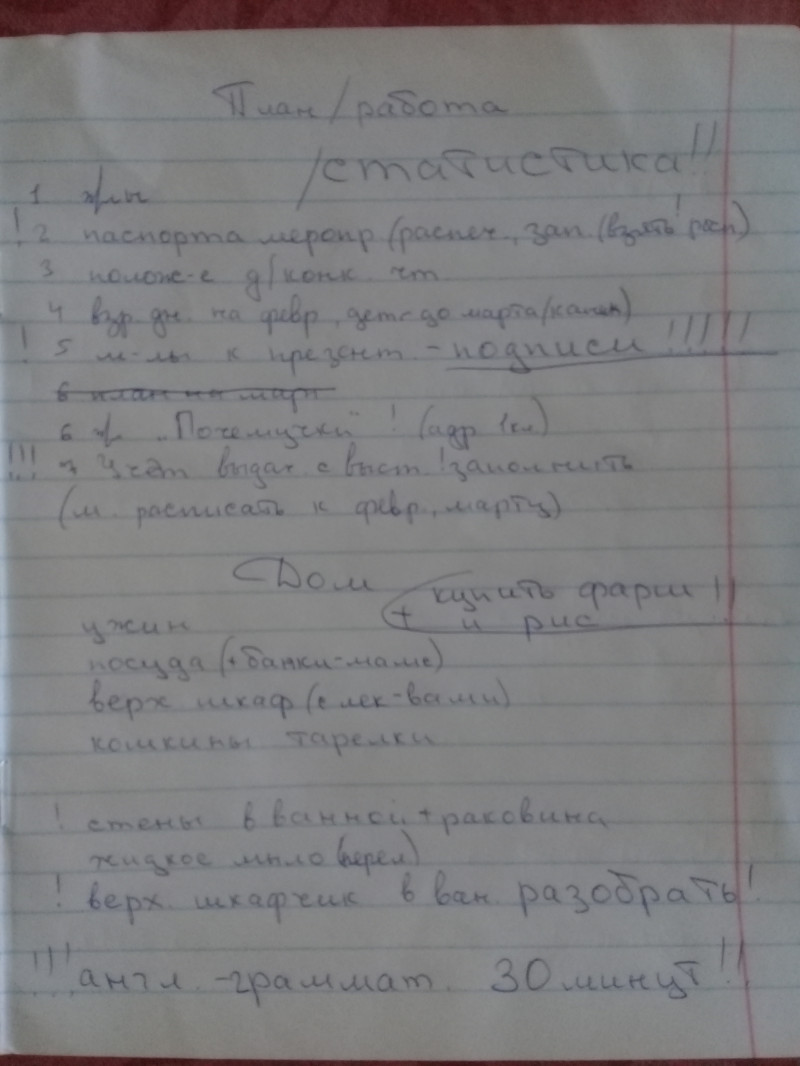 План/работа
/статистика!!
1 ж/лы
! 2 паспорта меропр (распеч., зап. (взять! расп)
3 полож-е д/конк. чт
4 взр. дн. на февр, детс до марта/
! 5 м-лы к презент - подписи !!!!!
6 план на март
6 ж. „Почемучки" ! (адр 1кл)
!!! 7 Учёт выдач с выст !заполнить
(м. расписать к февр., марту)
Дом
купить фарш !!
ужин
+ и рис
посуда (+банки-маме)
верх шкаф (с лек-вами)
кошкины тарелки
! стены в ванной + раковина
жидкое мыло (перел)
! верх. шкафчик в ван. разобрать!
!!! англ. -граммат. 30 минут!!